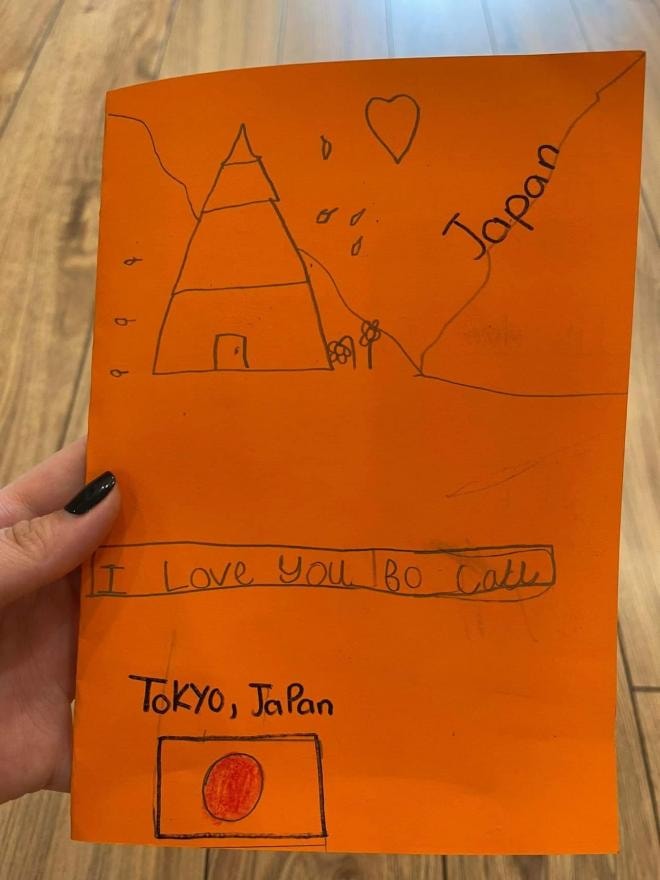 Japan
I Love You Bo
Tokyo, Japan